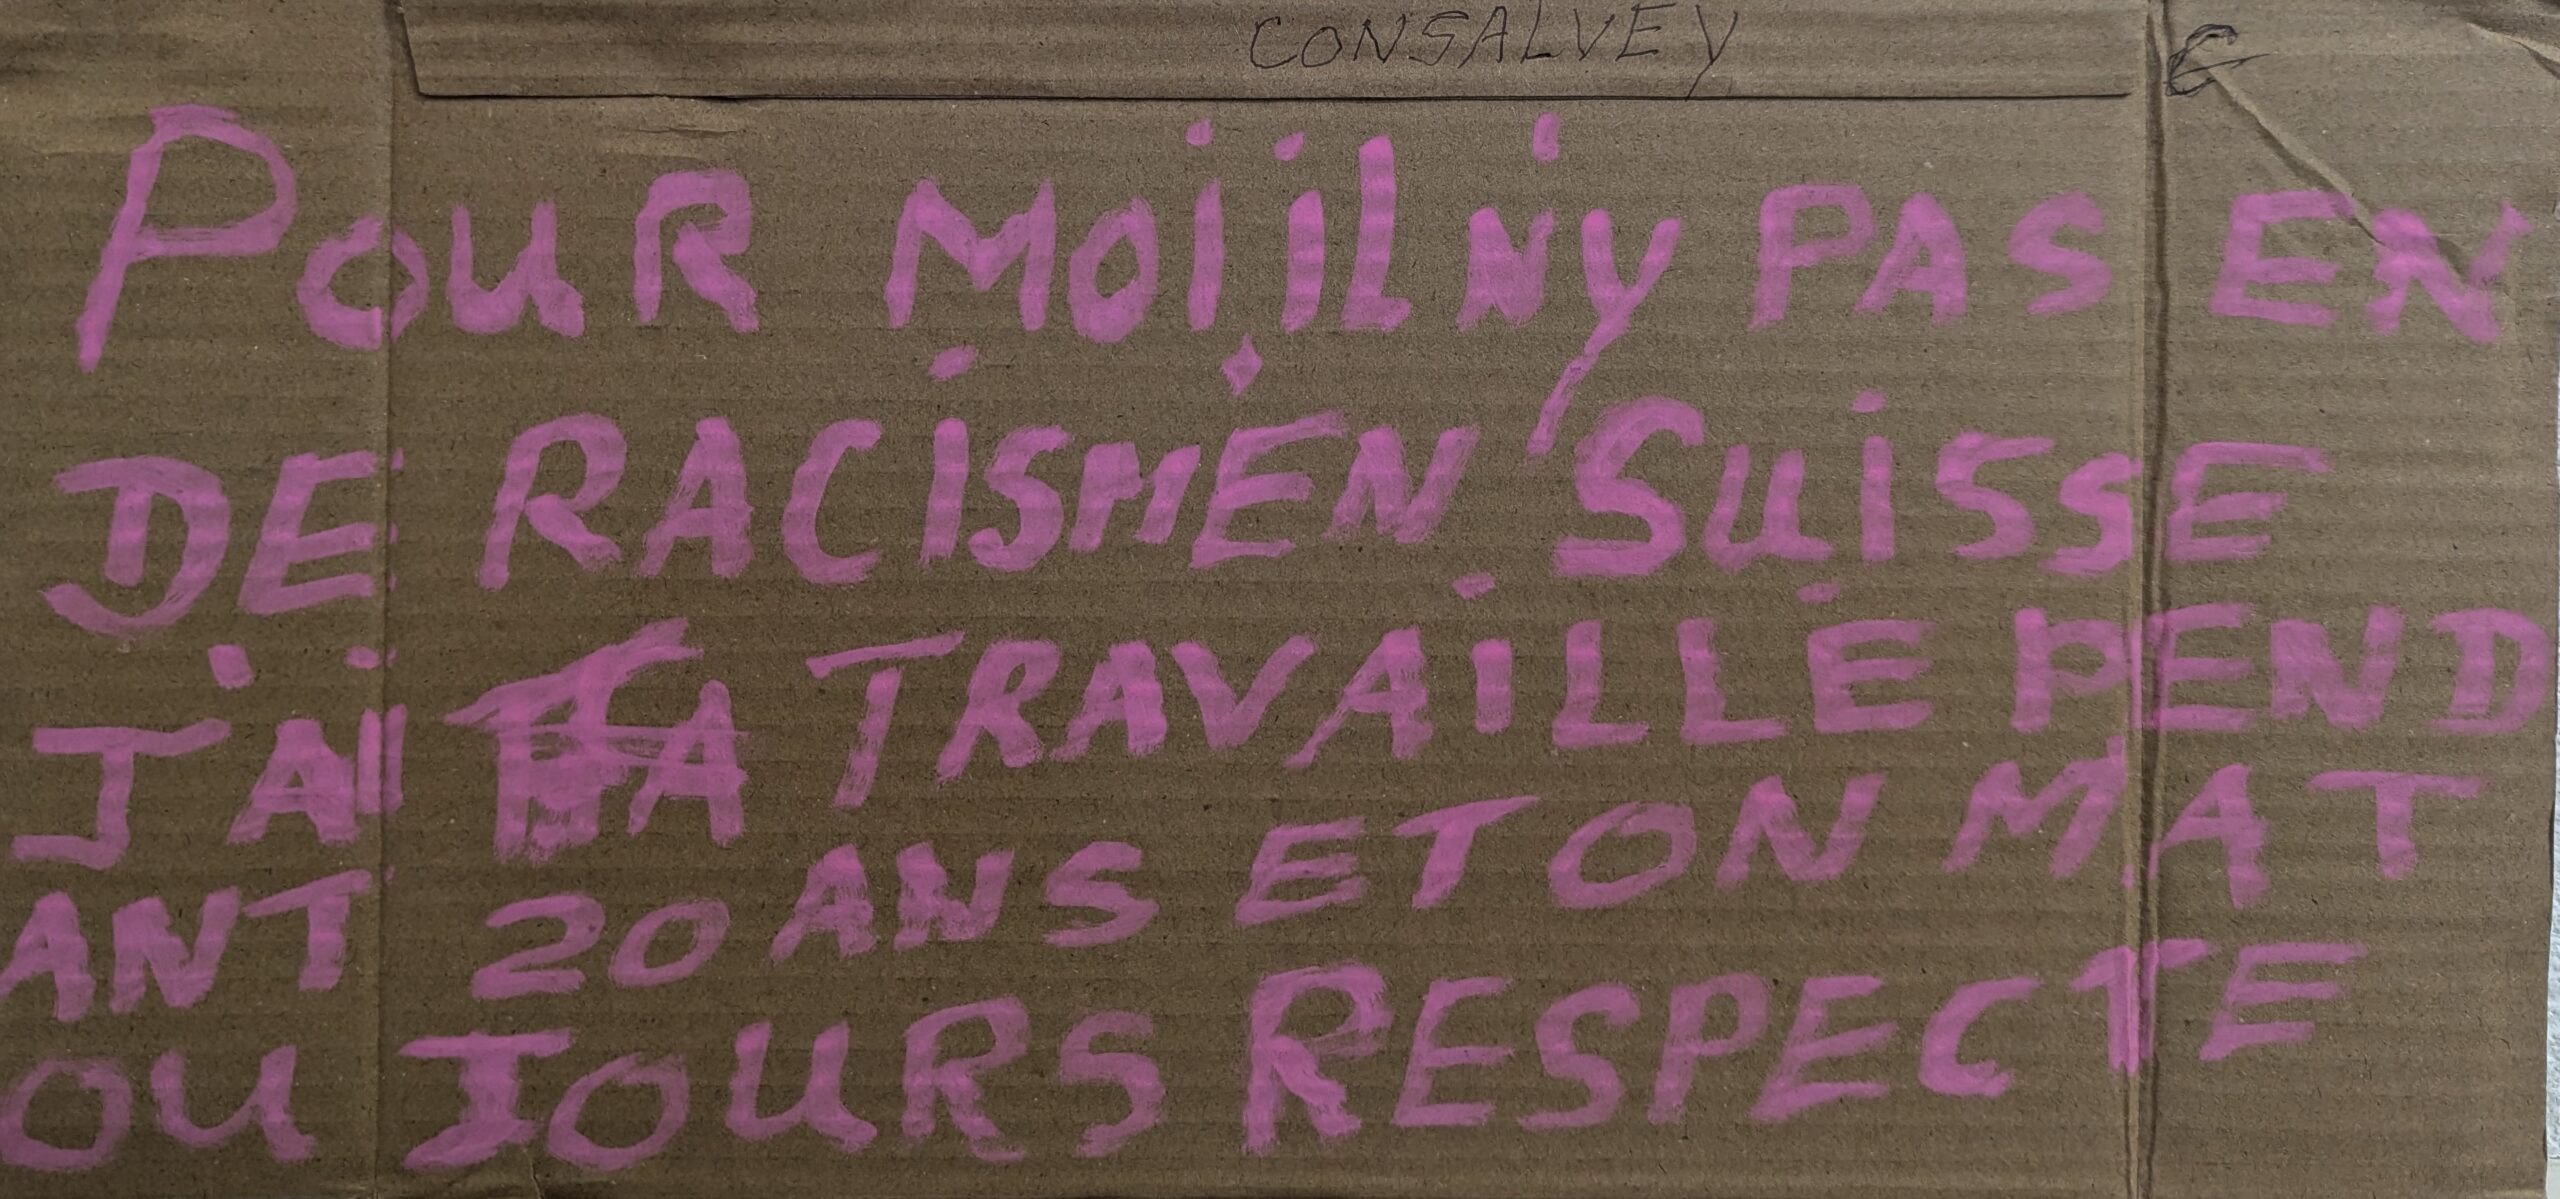 CONSALVEY
POUR MOi iL N'y PAS EN
DE RACiSM EN SuiSSE
J'Ai TRAVAiLLE PEND
ANT 20 ANS ET ON M'A T
OU JOURS RESPECTE